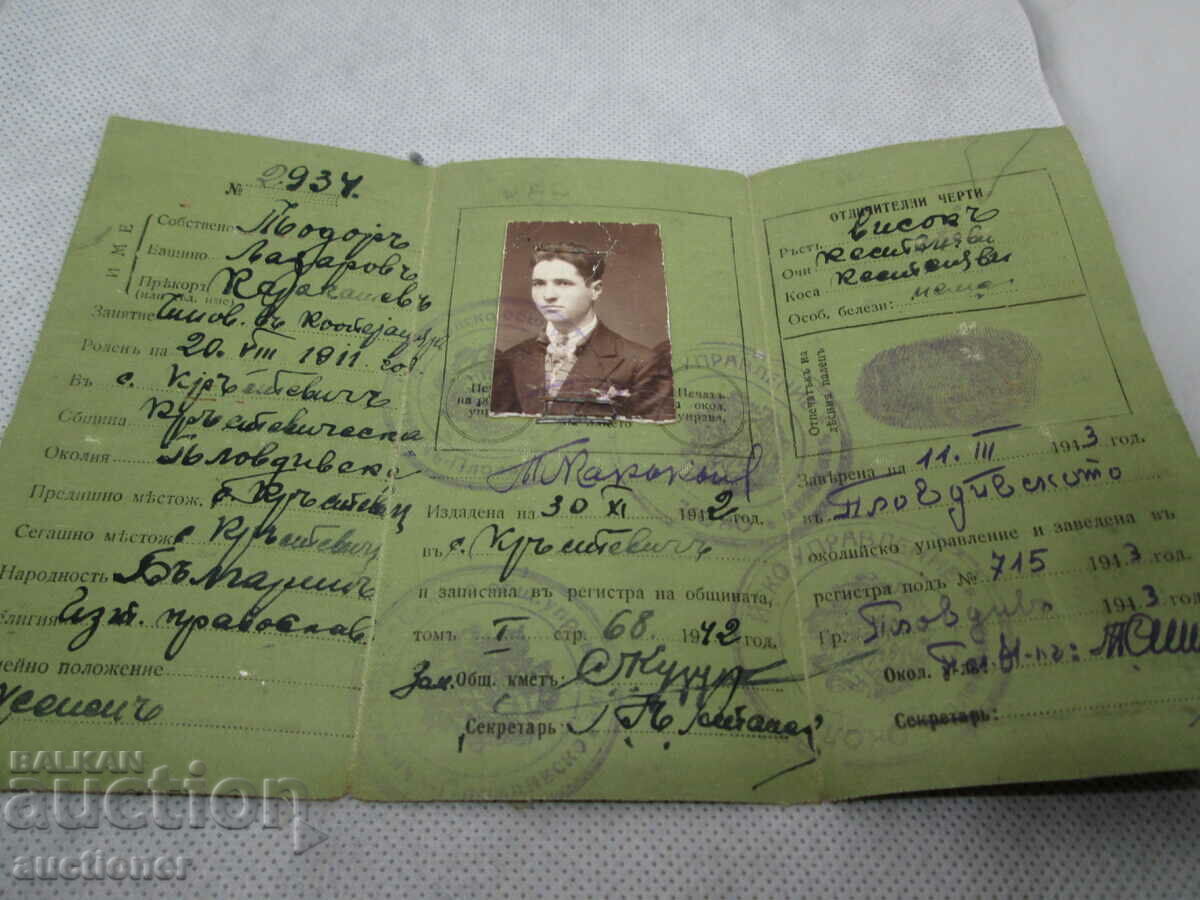 № 2934.
ИМЕ
Собствено Тодоръ
Бащино Лазаровъ
Прѣкоръ
(или фам. име)
Занятие
Роденъ на 20. VIII 1911 год.
Въ с. Кръстевичъ
Община Кръстевическа
Околия Пловдивска
Предишно мѣстож. с. Кръстевич
Сегашно мѣстож. с Кръстевичъ
Народность Българинъ
елигия Изт. православ.
ейно положение
Печатъ
Печатъ
окол.
управл.
Издадена на 30 XI 1942 год.
въ с. Кръстевичъ
и записана въ регистра на общината,
томъ I стр. 68. 1942 год.
Зам. Общ. кметъ:
Секретарь
ОТЛИЧИТЕЛНИ ЧЕРТИ
Ръстъ Високъ
Очи кестеняви
Коса кестенява
Особ. белези: няма.
Отпечатъкъ на
дѣсния палецъ
Завѣрена на 11. III 1943 год.
въ Пловдивското
околийско управление и заведена въ
регистра подъ № 715 1943 год.
Гр. Пловдивъ 1943 год.
Окол.
Секретарь:
BALKAN
auction
auctioner